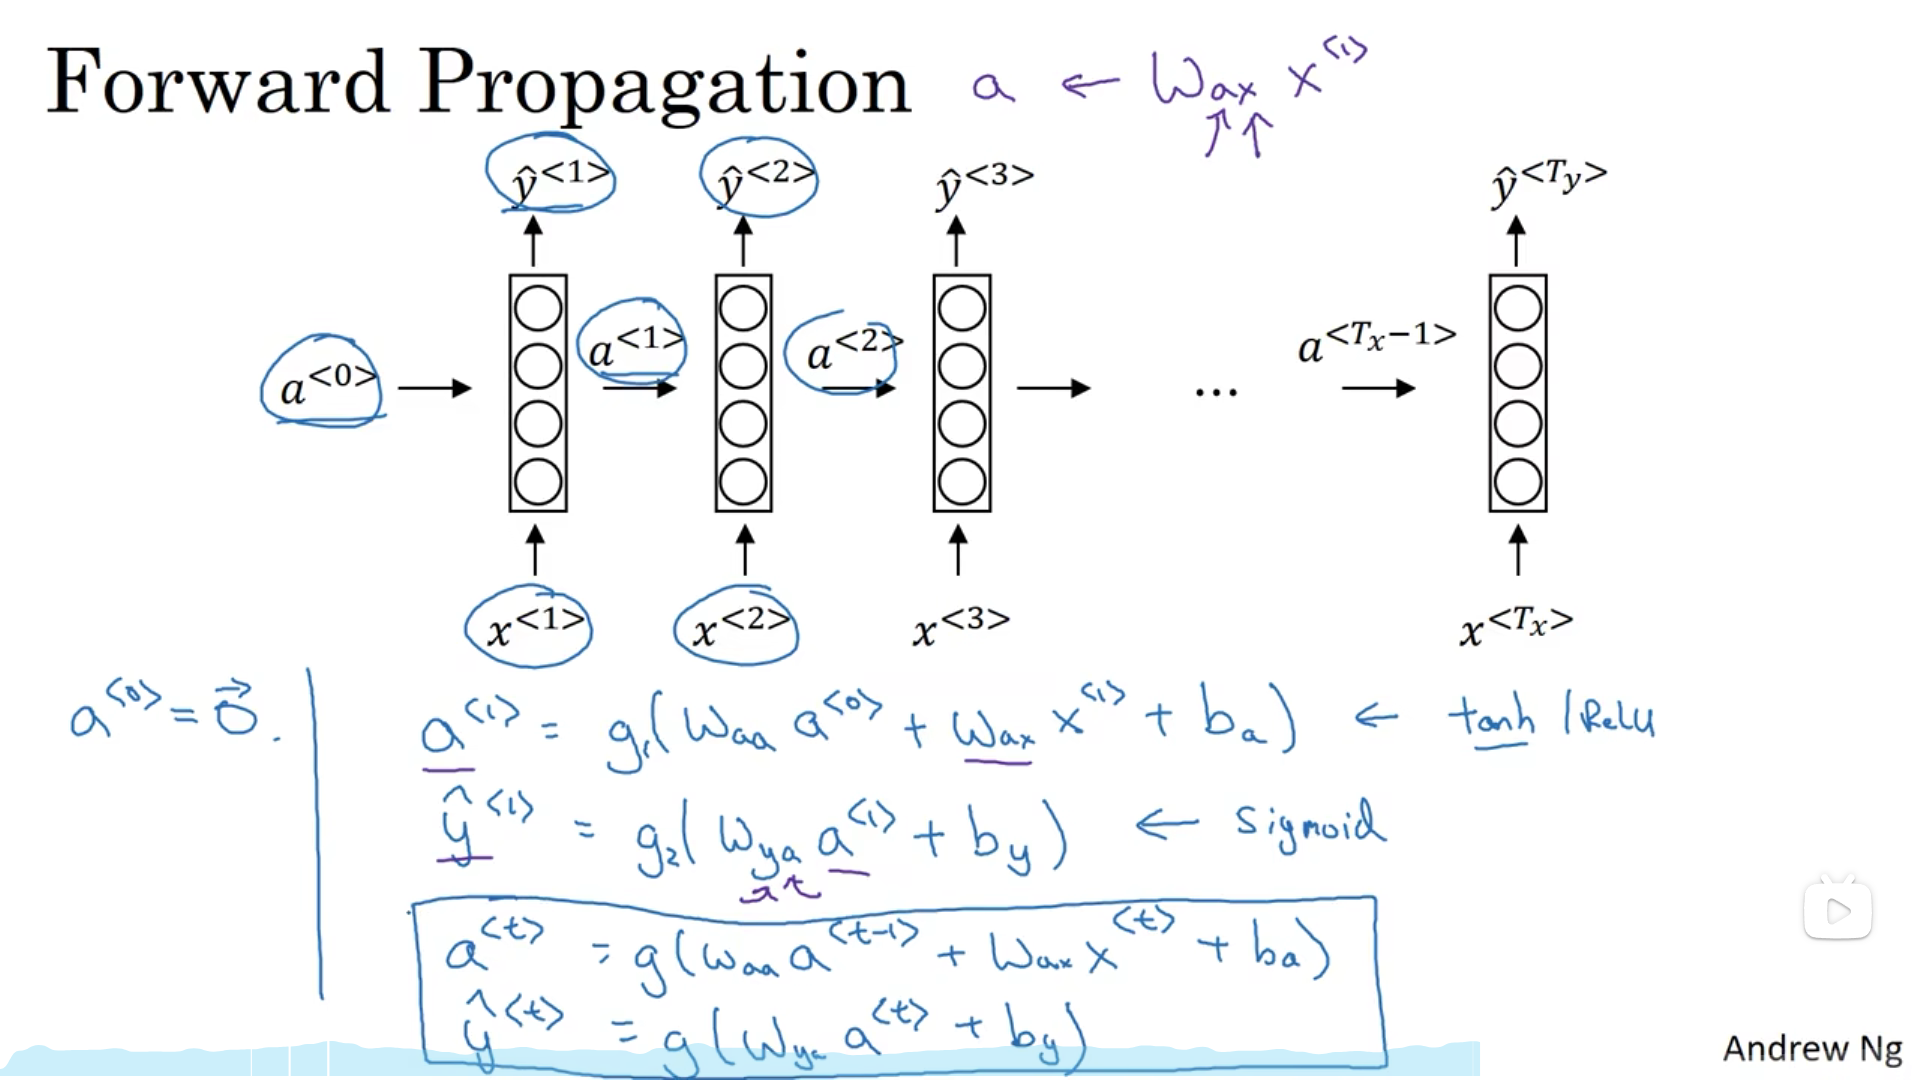 Forward Propagation a ← Wax x<1>
ŷ<1> ŷ<2> ŷ<3> ŷ<Ty>
a<0> a<1> a<2> ... a<Tx−1>
x<1> x<2> x<3> x<Tx>
a<0> = 0⃗.
a<1> = g₁(Waa a<0> + Wax x<1> + ba) ← tanh / ReLU
ŷ<1> = g₂(Wya a<1> + by) ← sigmoid
a<t> = g(Waa a<t-1> + Wax x<t> + ba)
ŷ<t> = g(Wya a<t> + by)
Andrew Ng